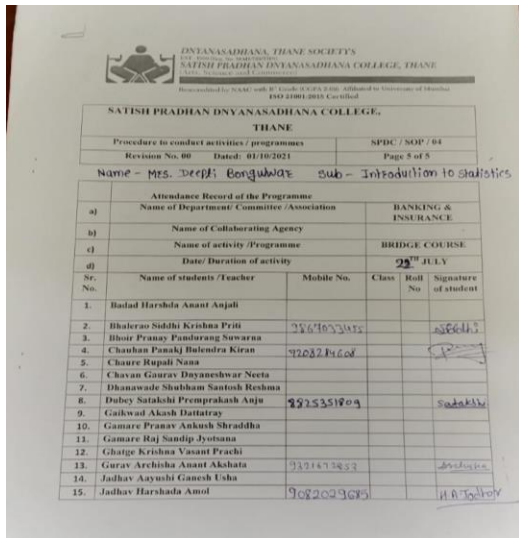 DNYANASADHANA, THANE SOCIETY'S
SATISH PRADHAN DNYANASADHANA COLLEGE, THANE
(Arts, Science and Commerce)
ISO 21001:2018 Certified
SATISH PRADHAN DNYANASADHANA COLLEGE,
THANE
Procedure to conduct activities / programmes SPDC / SOP / 04
Revision No. 00 Dated: 01/10/2021 Page 5 of 5
Name - Mrs. Deepti Bongulwar Sub - Introduction to statistics
Attendance Record of the Programme
a) Name of Department/ Committee /Association BANKING & INSURANCE
b) Name of Collaborating Agency
c) Name of activity /Programme BRIDGE COURSE
d) Date/ Duration of activity 22TH JULY
Sr. No. Name of students /Teacher Mobile No. Class Roll No Signature of student
1. Badad Harshda Anant Anjali
2. Bhalerao Siddhi Krishna Priti
3. Bhoir Pranay Pandurang Suwarna
4. Chauhan Panakj Bulendra Kiran
5. Chaure Rupali Nana
6. Chavan Gaurav Dnyaneshwar Neeta
7. Dhanawade Shubham Santosh Reshma
8. Dubey Satakshi Premprakash Anju 8825351809 Satakshi
9. Gaikwad Akash Dattatray
10. Gamare Pranav Ankush Shraddha
11. Gamare Raj Sandip Jyotsana
12. Ghatge Krishna Vasant Prachi
13. Gurav Archisha Anant Akshata
14. Jadhav Aayushi Ganesh Usha
15. Jadhav Harshada Amol 9082029685